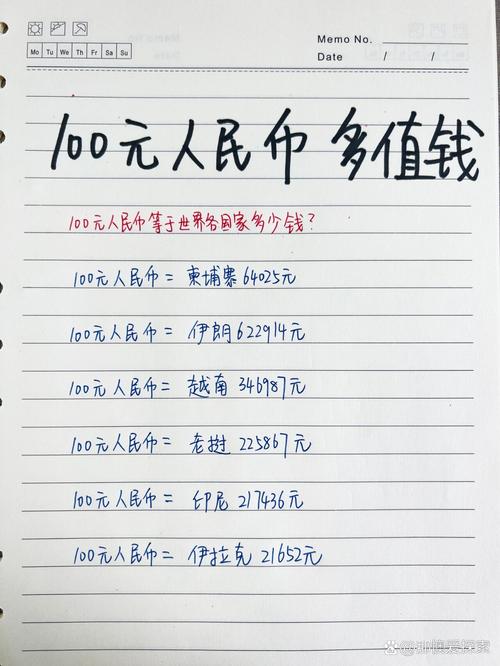 Mo Tu We Th Fr Sa Su
Memo No.
Date / /
100元人民币多值钱
100元人民币等于世界各国家多少钱?
100元人民币 = 柬埔寨 64025元
100元人民币 = 伊朗 622914元
100元人民币 = 越南 346987元
100元人民币 = 老挝 225867元
100元人民币 = 印尼 217436元
100元人民币 = 伊拉克 21652元